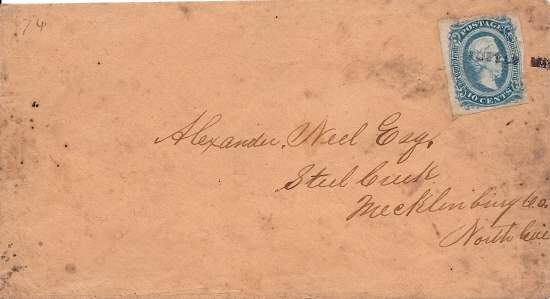 74
POSTAGE
10 CENTS
Alexander Neel Esq.
Steel Creek
Mecklinburg Co.
North